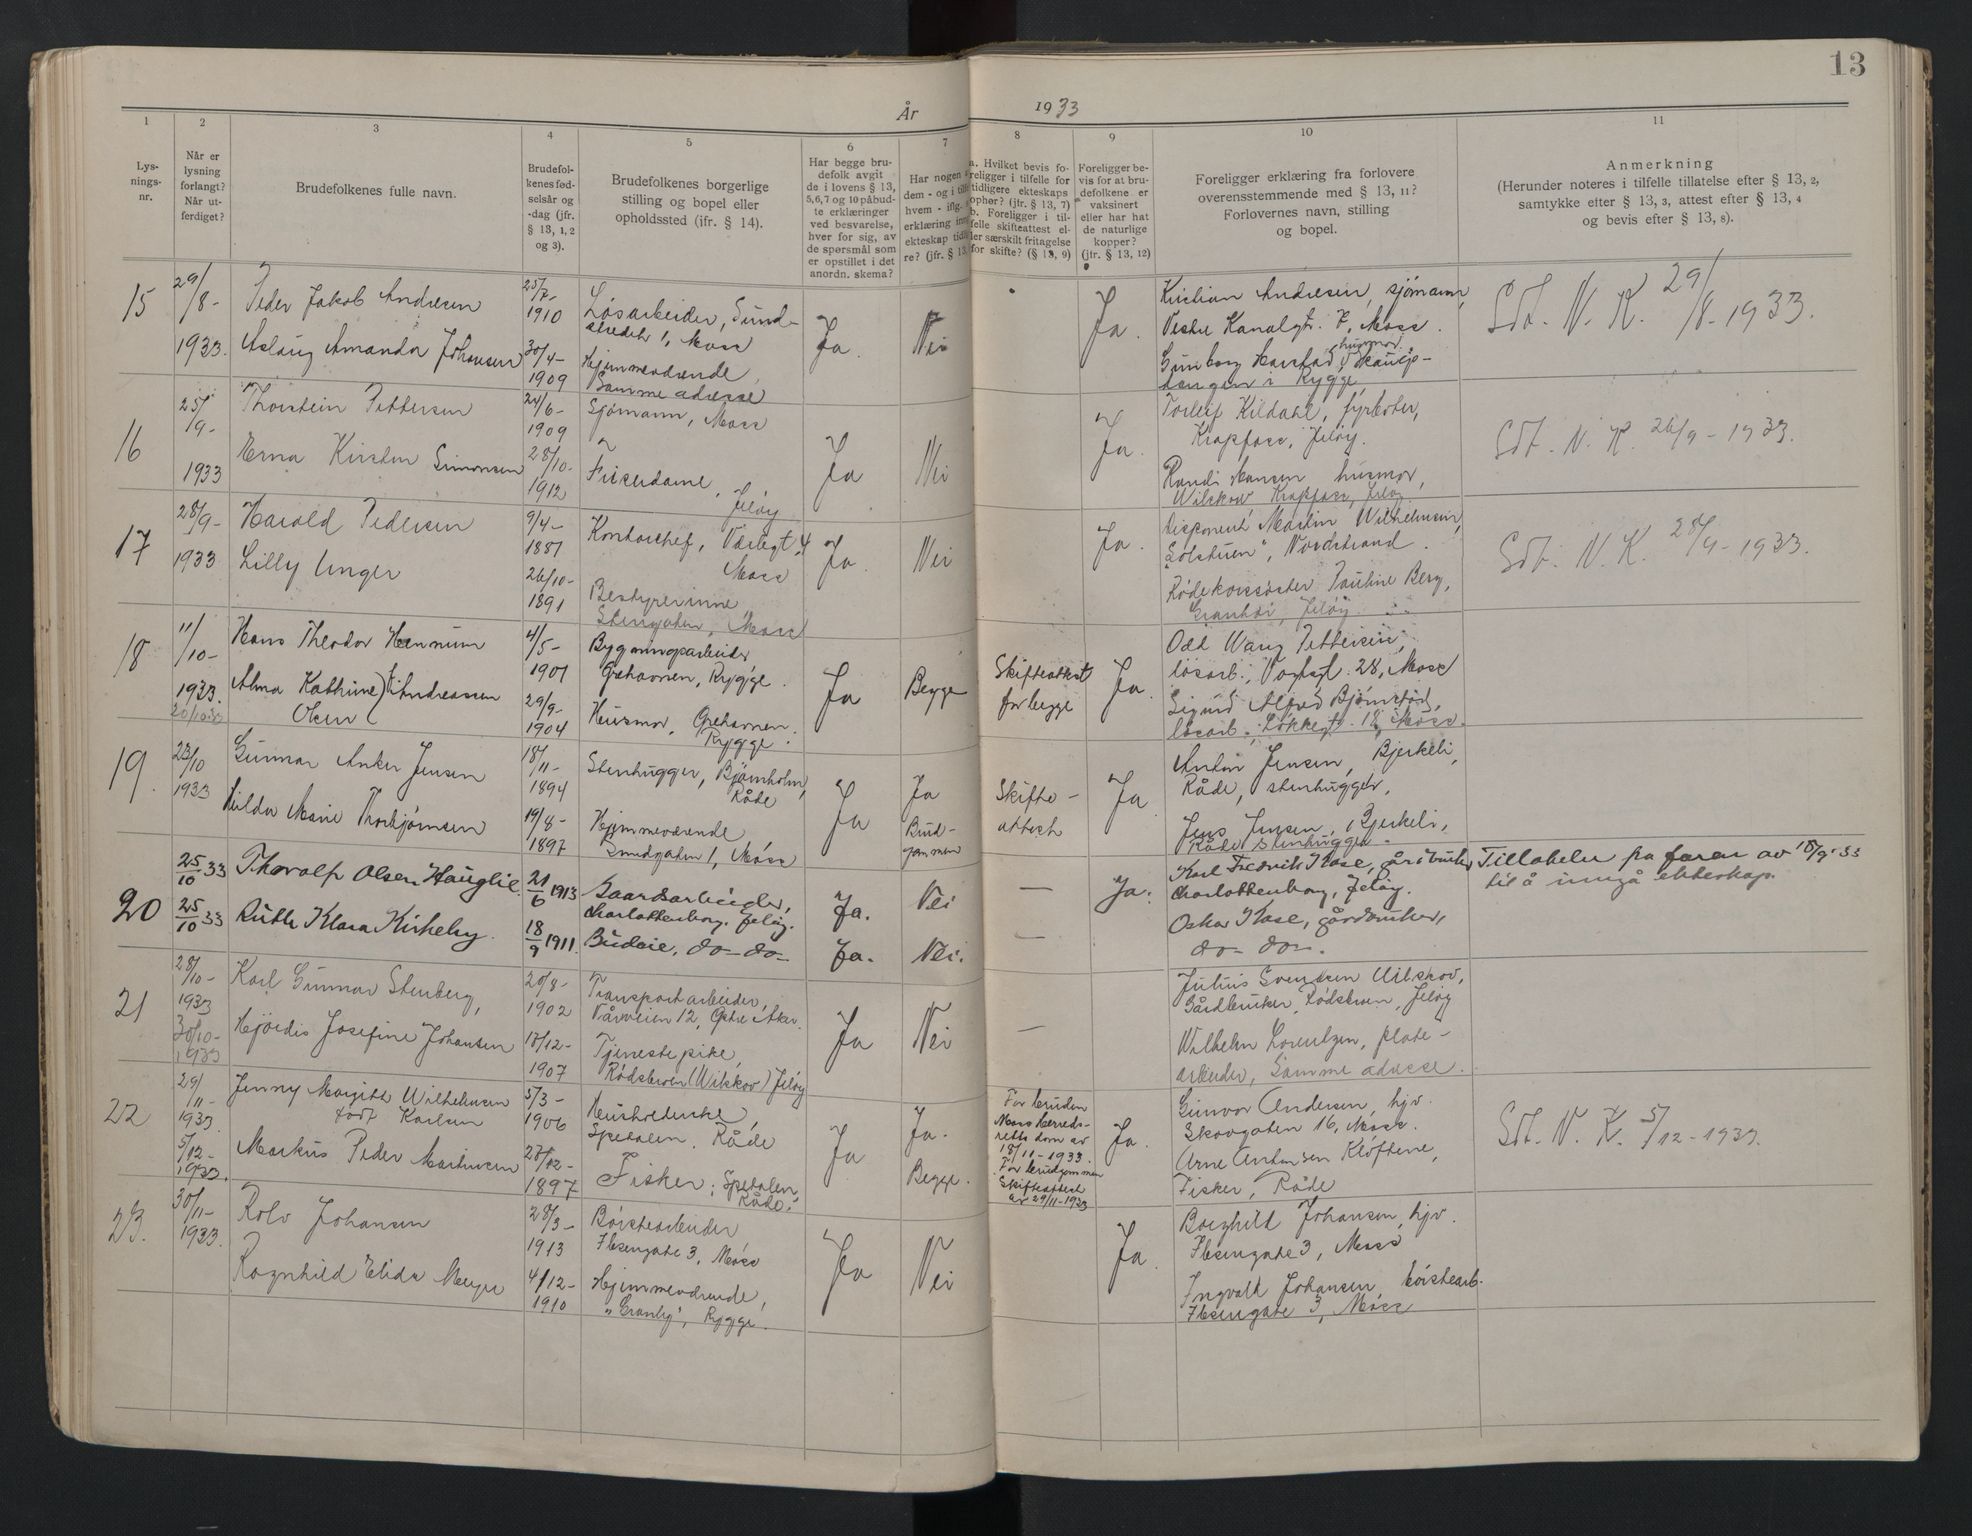 13
År 1933
1 2 3 4 5 6 7 8 9 10 11
Lysnings-nr.
Når er lysning forlangt? Når utferdiget?
Brudefolkenes fulle navn.
Brudefolkenes fødselsår og -dag (jfr. § 13, 1, 2 og 3).
Brudefolkenes borgerlige stilling og bopel eller opholdssted (jfr. § 14).
Har begge brudefolk avgit de i lovens § 13, 5, 6, 7 og 10 påbudte erklæringer ved besvarelse, hver for sig, av de spørsmål som er opstillet i det anordn. skema?
Har nogen a
dem - og i tilfe
hvem - iflg.
erklæring inng
ekteskap tidli
re? (jfr. § 13,
a. Hvilket bevis foreligger i tilfelle for tidligere ekteskaps ophør? (jfr. § 13, 7)
b. Foreligger i tilfelle skifteattest eller særskilt fritagelse for skifte? (§ 13, 9)
Foreligger bevis for at brudefolkene er vaksinert eller har hat de naturlige kopper? (jtr. § 13, 12)
Foreligger erklæring fra forlovere overensstemmende med § 13, 11? Forlovernes navn, stilling og bopel.
Anmerkning
(Herunder noteres i tilfelle tillatelse efter § 13, 2, samtykke efter § 13, 3, attest efter § 13, 4 og bevis efter § 13, 8).
15
29/8- 1933.
Peder Jakob Andresen
Aslaug Amanda Johansen
25/7- 1910
30/4- 1909
Løsarbeider, Sund-
stredet 1, Moss
Hjemmeværende
Samme adresse
Ja.
Nei
Ja.
Kristian Andresen, sjømann,
Vestre Kanalgt. 7, Moss.
Gunborg Harstad, husmor,
tangen i Rygge
Sdt. N. K. 29/8-1933.
16
25/9- 1933
Thorstein Pettersen
Erna Kirsten Simonsen
24/6- 1909
28/10- 1912
Sjømann, Moss
Jeløy
Ja
Nei
Ja.
Torleif Kildahl, fyrbøter,
Krapfoss, Jeløy.
Randi Hansen husmor,
Wilskov Krapfoss, Jeløy.
Sdt. N. K. 26/9-1933.
17
28/9- 1933
Harald Pedersen
Lilly Unger
9/4- 1887
26/10- 1891
Kontorchef, Værlegt 4
Moss
Bestyrerinne,
Stengaten, Moss
Ja.
Nei
Ja.
Disponent Martin Wilhelmsen,
"Solstuen", Nordstrand.
Rødekorssøster Pauline Berg,
Granhei, Jeløy.
Sdt. N. K. 28/9-1933.
18
11/10- 1933.
20/10 33
Hans Theodor Hennum
Alma Kathrine Andreassen
Olsen
4/5- 1901
29/9- 1904
Bygningsarbeider
Grehavnen, Rygge.
Husmor, Grehavnen.
Rygge.
Ja
Begge
Skifteattest
for begge
Ja.
Odd Wang Pettersen,
løsarb., Vogtsgt. 28, Moss
Sigurd Alfred Bjørnstød,
løsarb., Løkkegt. 18, Moss.
19.
23/10 1933
Gunnar Anker Jensen
Hilda Marie Thorbjørnsen
18/11- 1894
19/8- 1897
Stenhugger, Bjørnholm,
Råde
Hjemmeværende
Sundgaten 1, Moss
Ja
Ja
Brud-
gommen
Skifte-
attest
Ja
Anton Jensen, Bjerkeli,
Råde, stenhugger,
Jens Jensen, Bjerkeli,
Råde stenhugger.
20
25/10 33
Thorolf Olsen Hauglie
25/10 33
Ruth Klara Kirkeby.
21/6 1913
18/9 1911.
Gaardsarbeider,
Charlottenborg. Jeløy.
Budeie, do- do-
Ja.
Ja.
Nei
Nei.
—
—
Ja.
Karl Fredrik Hase, gårdbruker
Charlottenborg, Jeløy.
Oskar Hase, gårdbruker,
do- do-.
Tillatelse fra faren av 18/9 33
til å inngå ekteskap.
21
28/10- 1933
30/10- 1933
Karl Gunnar Stenberg,
Hjørdis Josefine Johansen
20/8- 1902
17/12- 1907
Transportarbeider,
Vårveien 12, Østre Aker.
Tjenestepike,
Rødsbroen (Wilskov) Jeløy
Ja
Nei
—
Julius Svendsen Wilskov,
Gårdbruker, Rødsbroen, Jeløy
Wilhelm Lorentzen, plate-
arbeider, Samme adresse.
22
29/11- 1933.
5/12- 1933.
Jenny Margith Wilhelmsen
født Karlsen
Markus Peder Martinsen
5/3- 1906
27/12- 1897
Husholderske,
Spetalen. Råde
Fisker, Spetalen,
Råde.
Ja
Ja.
Begge.
For bruden
Moss Herreds-
retts dom av
18/11-1933.
For brudgommen
Skifteattest
av 29/11-1933
Ja.
Gunvor Andersen, hjv.
Skovgaten 16, Moss.
Arne Antonsen Kløftene,
Fisker, Råde
Sdt. N. K. 5/12-1933.
23.
30/11- 1933.
Rolv Johansen
Ragnhild Elida Meyer
28/3- 1913
4/12- 1910
Børstearbeider
Ibsengate 3, Moss
Hjemmeværende,
"Granly", Rygge.
Ja
Nei
Ja.
Borghild Johansen, hjv.
Ibsengate 3, Moss
Ingvald Johansen, børstearb.
Ibsengate 3, Moss